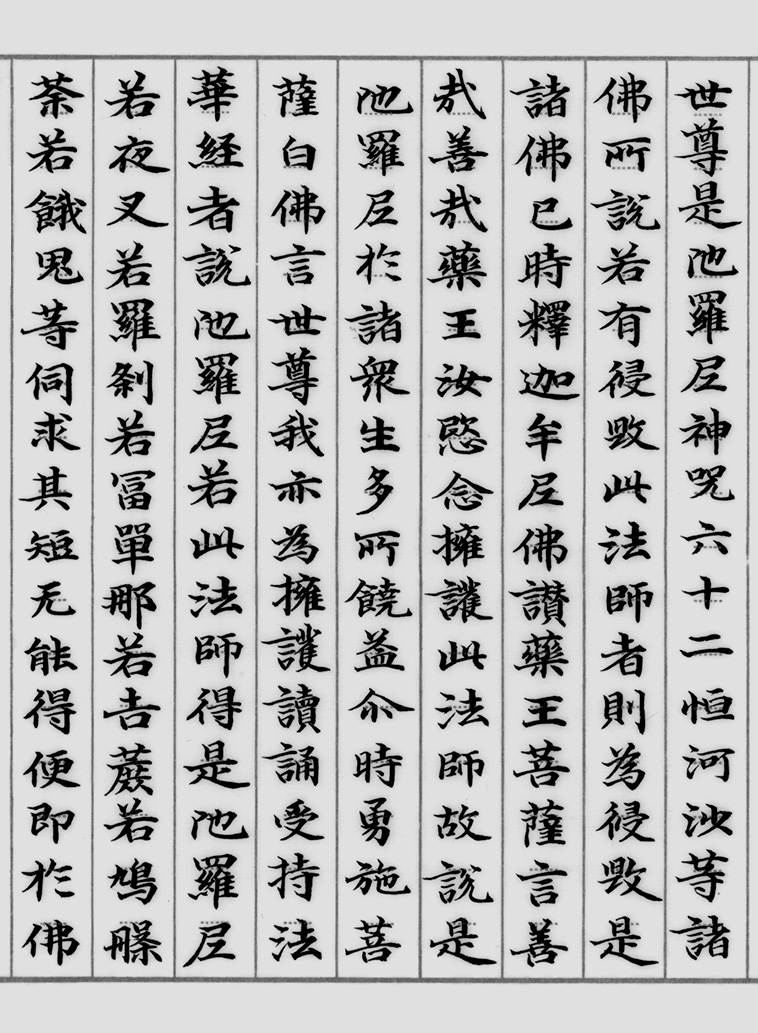 世尊是陁羅尼神呪六十二恒河沙等諸
佛所說若有侵毀此法師者則為侵毀是
諸佛已時釋迦牟尼佛讃藥王菩薩言善
哉善哉藥王汝愍念擁護此法師故說是
陁羅尼於諸眾生多所饒益尒時勇施菩
薩白佛言世尊我亦為擁護讀誦受持法
華経者說陁羅尼若此法師得是陁羅尼
若夜叉若羅剎若冨單那若吉蔗若鳩槃
荼若餓鬼等伺求其短无能得便即於佛